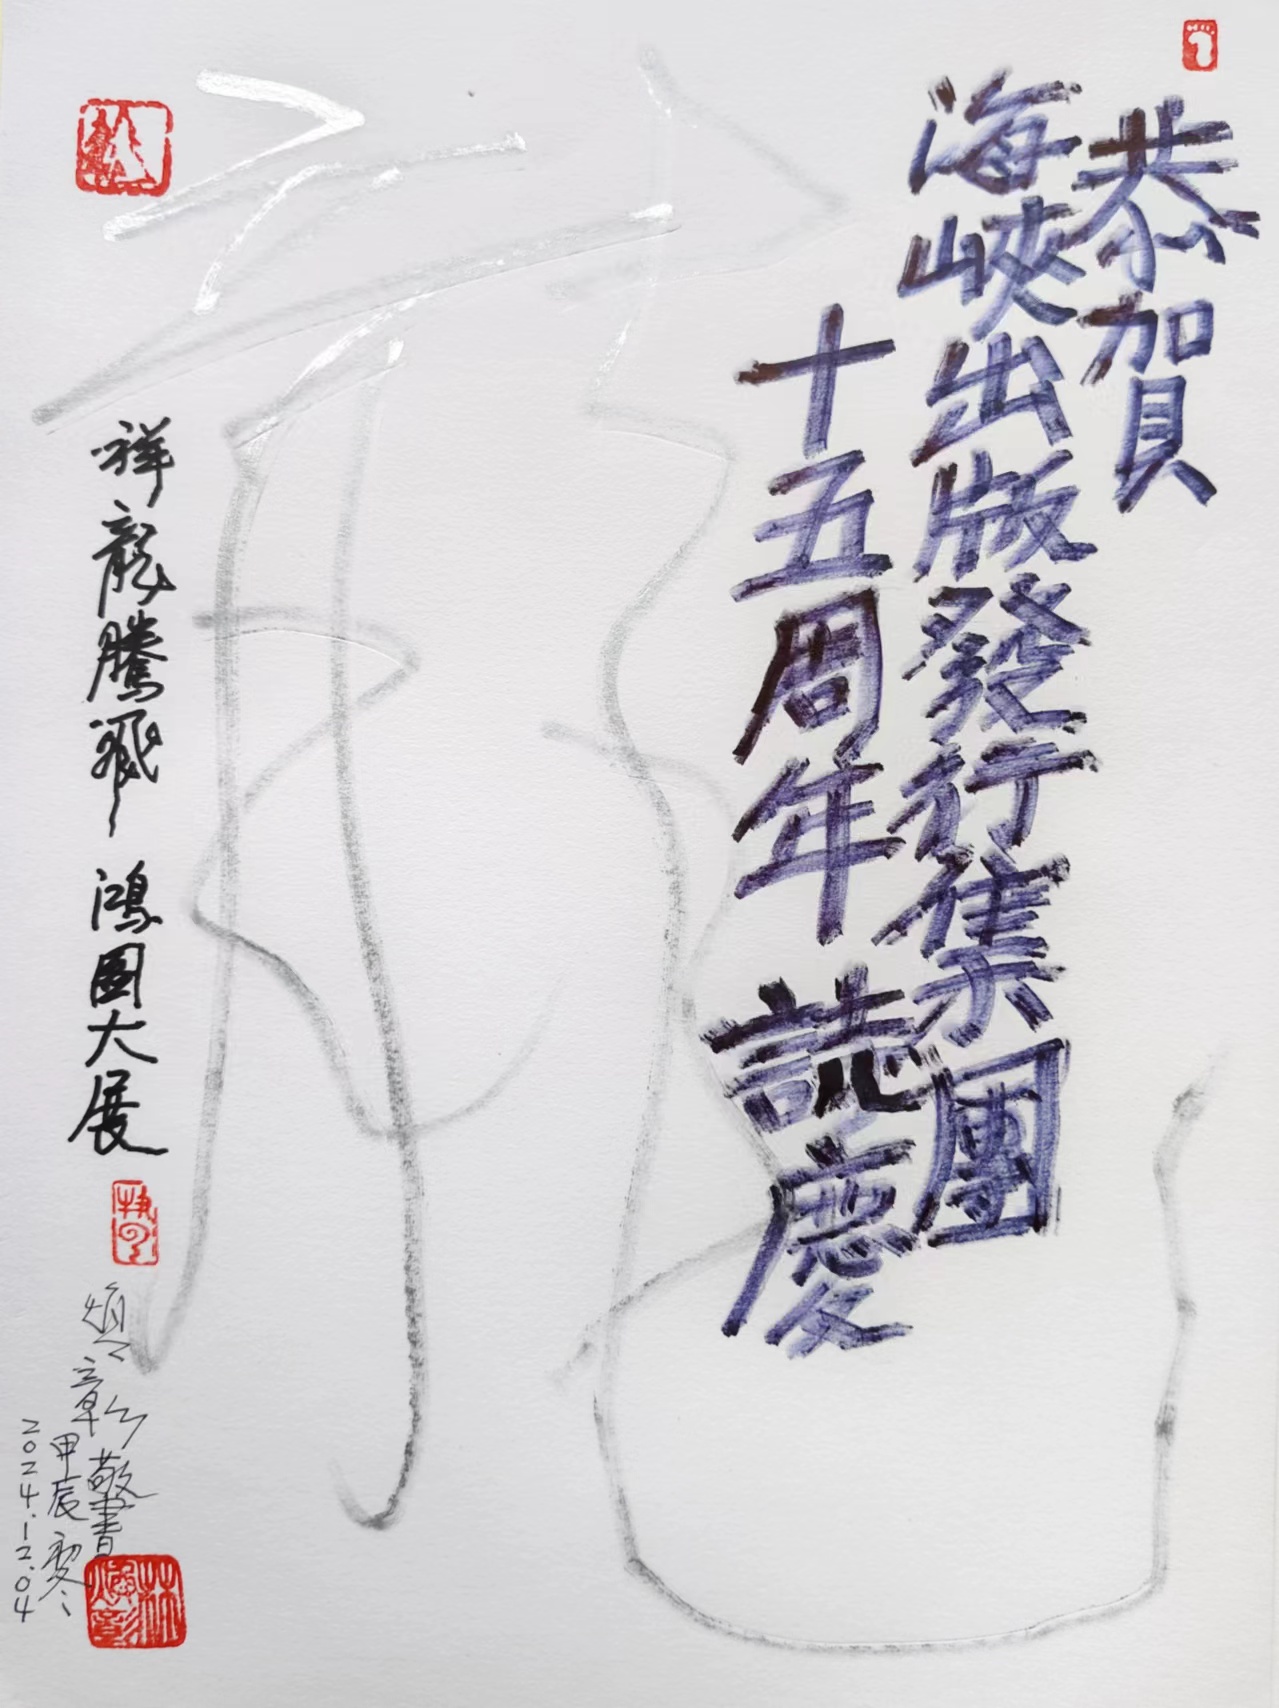 恭賀
海峽出版發行集團
十五周年 誌慶
祥龍騰飛 鴻圖大展
煥彰敬書
甲辰冬
2024.12.04
林煥彰